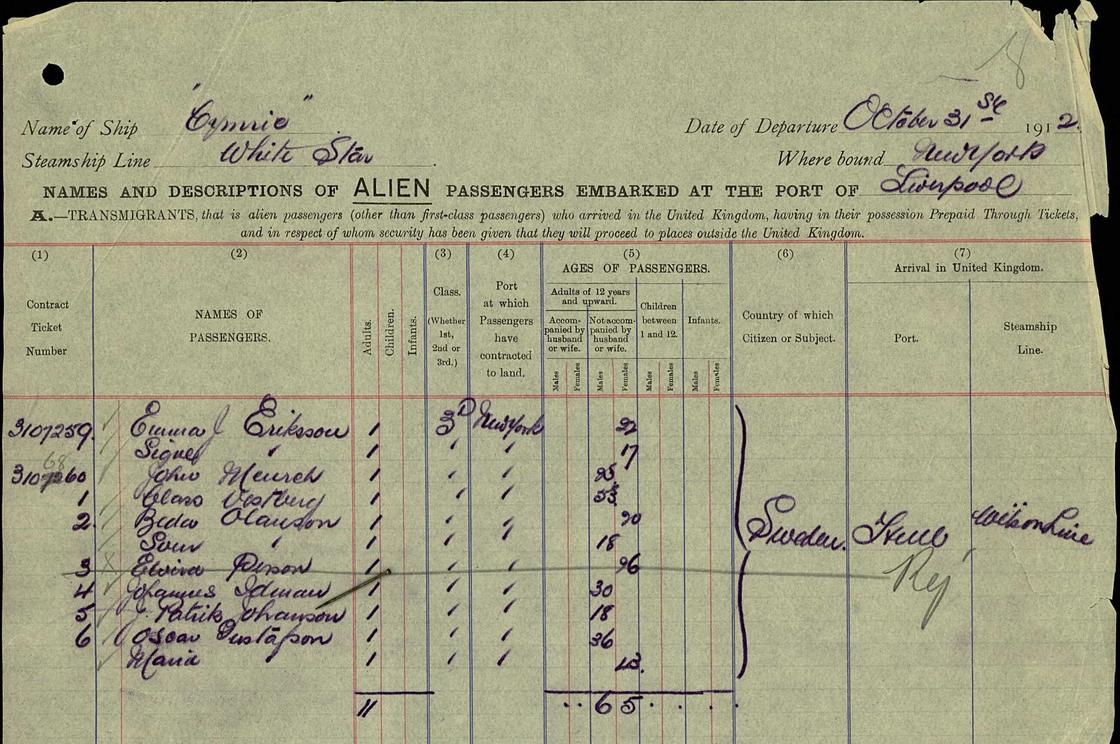 8
Name of Ship "Cymric"
Date of Departure October 31st 1912.
Steamship Line White Star
Where bound New York
NAMES AND DESCRIPTIONS OF ALIEN PASSENGERS EMBARKED AT THE PORT OF Liverpool
A.—TRANSMIGRANTS, that is alien passengers (other than first-class passengers) who arrived in the United Kingdom, having in their possession Prepaid Through Tickets,
and in respect of whom security has been given that they will proceed to places outside the United Kingdom.
(1) (2) (3) (4) (5) (6) (7)
Contract Ticket Number
NAMES OF PASSENGERS.
Adults.
Children.
Infants.
Class. (Whether 1st, 2nd or 3rd.)
Port at which Passengers have contracted to land.
AGES OF PASSENGERS.
Adults of 12 years and upward.
Accompanied by husband or wife.
Not accompanied by husband or wife.
Children between 1 and 12.
Infants.
Males Females Males Females Males Females Males Females
Country of which Citizen or Subject.
Arrival in United Kingdom.
Port.
Steamship Line.
3107259. Emma J Eriksson 1 3D New York
Signe " 1 " " 17
310 60 John 1 " "
1 1 " "
2. Beda Olauson 1 " "
Sven " 1 " " 18
Sweden. Hull Wilson Line
3 Elvira Person 1 " " Rej
4 Johannes Idman 1 " " 30
5 J. Patrik Johanson 1 " " 18
6 Oscar Gustafson 1 " " 36
Maria " 1 " "
11 6 5